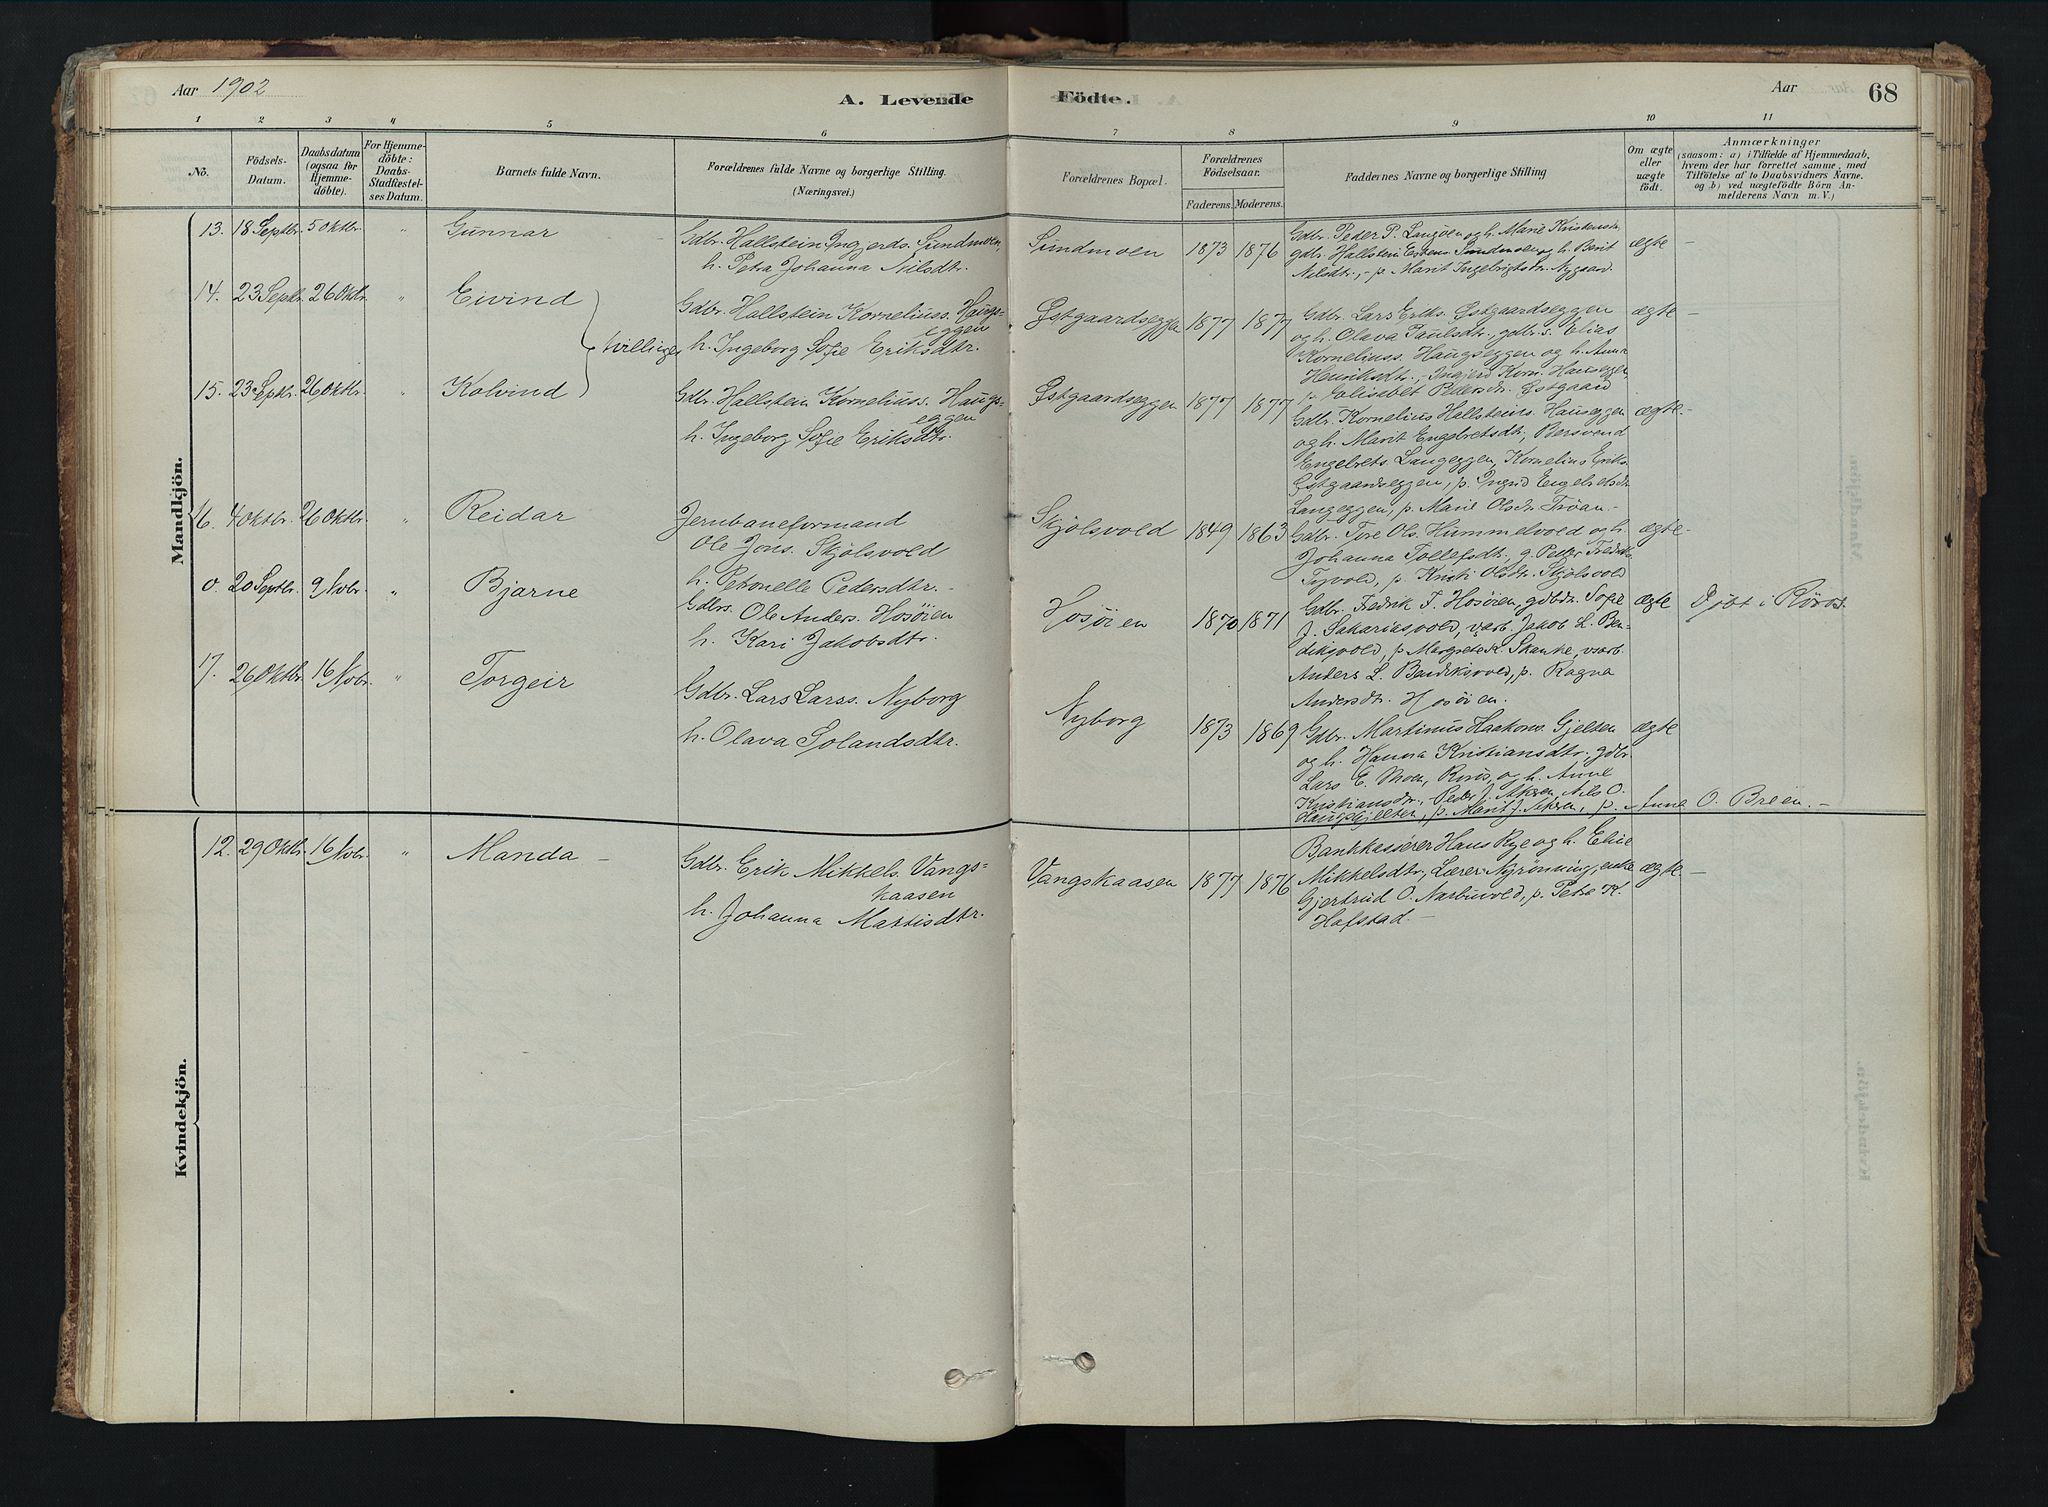 Aar 1902
A. Levende Födte.
Aar 68
1 2 3 4 5 6 7 8 9 10 11
No.
Födsels-Datum.
Daabsdatum (ogsaa for Hjemmedöbte).
For Hjemmedöbte: Daabs-Stadfæstelses Datum.
Barnets fulde Navn.
Forældrenes fulde Navne og borgerlige Stilling.
(Næringsvei.)
Forældrenes Bopæl.
Forældrenes Födselsaar.
Faderens. Moderens.
Faddernes Navne og borgerlige Stilling
Om ægte eller uægte födt.
Anmærkninger
(saasom: a) i Tilfælde af Hjemmedaab, hvem der har forrettet samme, med Tilföielse af to Daabsvidners Navne. og b) ved uægtefödte Börn Anmelderens Navn m. V.)
Mandkjön.
13. 18 Septbr. 5 Oktbr. " Gunnar
Gdbr. Hallstein Ingjerds. Sundmoen,
h. Petra Johanna Nilsdtr.
Sundmoen 1873 1876
Gdbr. Peder P. Langøen og h. Marie Kristensdtr.
gdbr. Hallstein Esbens. Sundmoen og h. Berit
Nilsdtr., - p. Marit Ingebrigtsdtr. Nygaard.
ægte -
14. 23 Septbr. 26 Oktbr. " Eivind
tvillinger
Gdbr. Hallstein Kornelius. Haugs-
eggen
h. Ingeborg Sofie Eriksdtr.
Østgaardseggen 1877 1877
Gdbr. Lars Eriks. Østgaardseggen
og h. Olava Paulsdtr., gdbr. s. Elias
Korneliuss. Haugseggen og h. Anna
Henriksdtr., - Ingjerd Korn. Haugseggen,
p. Elisabet Pedersdtr. Østgaard
ægte -
15. 23 Septbr. 26 Oktbr. " Kolvind
Gdbr. Hallstein Korneliuss. Haugs-
eggen
h. Ingeborg Sofie Eriksdtr.
Østgaardseggen 1877 1877
Gdbr. Kornelius Hallsteins. Hauseggen
og h. Marit Engebretsdtr., Bersvend
Engebrets. Langeggen, Kornelius Eriks.
Østgaardseggen, p. Ingrid Engebretsdtr.
Langeggen, p. Marie Olsdtr. Trøan. -
ægte -
16. 4 Oktbr. 26 Oktbr. " Reidar
Jernbaneformand
Ole Jons. Skjølsvold
h. Petronelle Pedersdtr. -
Skjølsvold 1849 1863
Gdbr. Tore Ols. Hummelvold og h.
Johanna Tollefsdtr., g. Petter Fredrik
Tyvold, p. Kristi Olsdtr. Skjølsvold
ægte -
0. 20 Septbr. 9 Novbr. " Bjarne
Gdbrs. Ole Anders. Hosøien
h. Kari Jakobsdtr.
Hosøien 1870 1871
Gdbr. Fredrik F. Hosøien, gdbdr. Sofie
J. Sakariasvold, varb. Jakob L. Ben-
diksvold, p. Margrete K. Skanke, varb.
Anders L. Bendiksvold, p. Ragna
Andersdtr. Hosøien.
ægte Døbt i Røros.
17. 26 Oktbr. 16 Novbr. " Torgeir
Gdbr. Lars Larss. Nyborg
h. Olava Solandsdtr.
Nyborg 1873 1869
Gdbr. Martinus Haakons. Gjelten
og h. Hanna Kristiansdtr., gdbr.
Lars E. Moen, Røros, og h. Anne
Kristiansdtr., - Peder J. Aksen, Nils O.
Haugsgjelten, p. Marit J. Aksen, p. Anne O. Breen. -
ægte
Kvindekjön.
12. 29 Oktbr. 16 Novbr. " Manda -
Gdbr. Erik Mikkels. Vangs-
kaasen
h. Johanna Mattisdtr.
Vangskaasen 1877 1876
Bankkasserer Hans Rye og h. Elise
Mikkelsdtr., Lærer Nyrønning, enke
Gjertrud O. Narbuvold, p. Petre K.
Hafstad -
ægte -